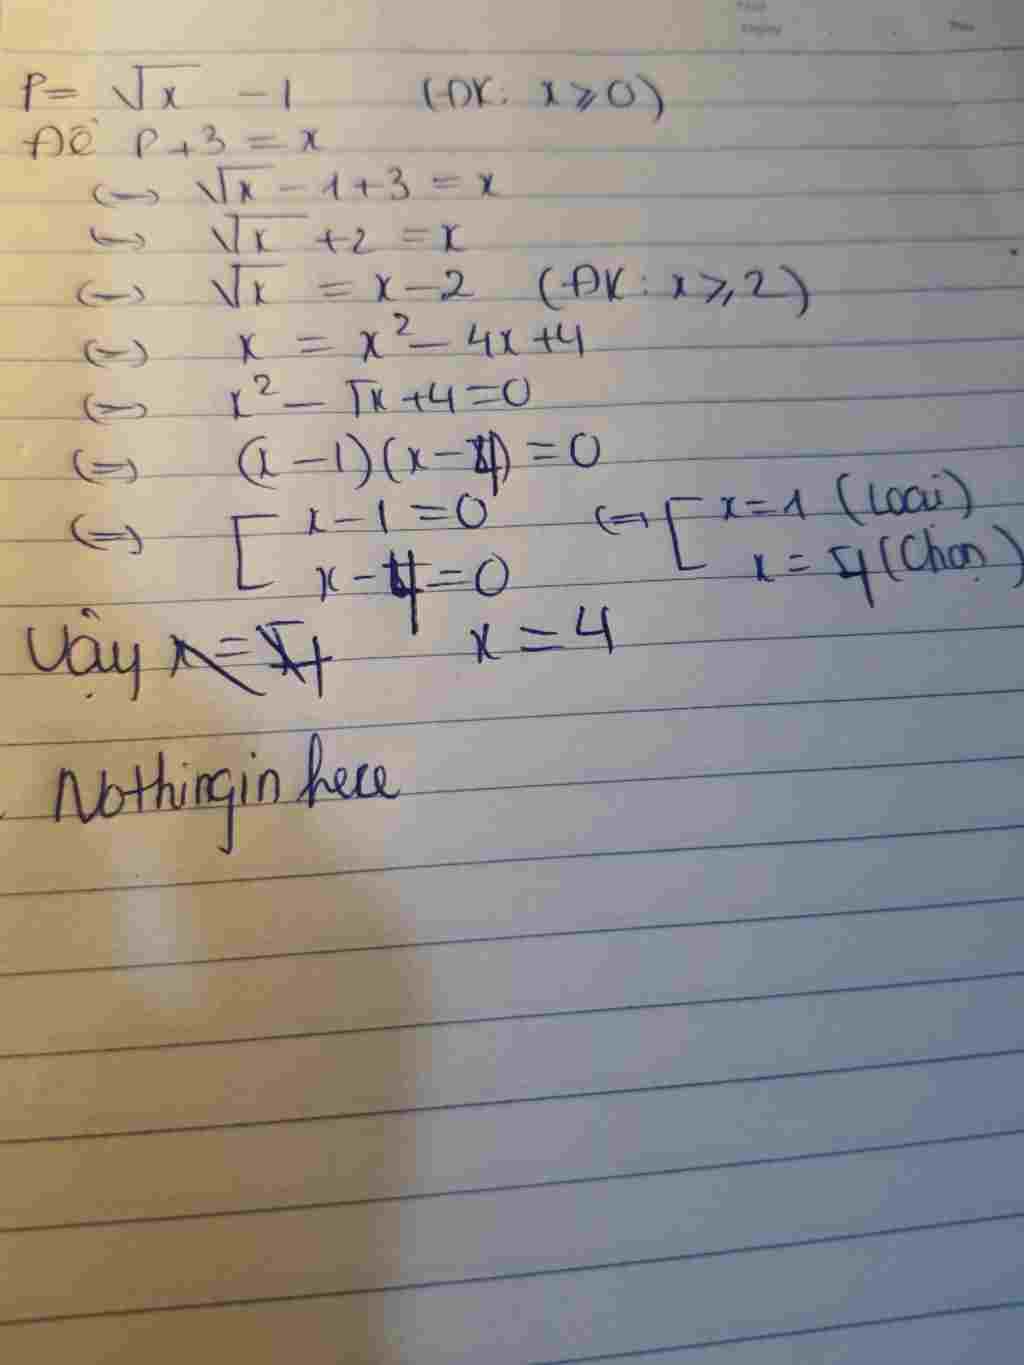 P = √x - 1 (ĐK: x ≥ 0)
Để P + 3 = x
(-) √x - 1 + 3 = x
(-) √x + 2 = x
(-) √x = x - 2 (ĐK: x ≥ 2)
(-) x = x² - 4x + 4
(-) x² - 5x + 4 = 0
(=) (x - 1)(x - 4) = 0
(=) [ x - 1 = 0 (=) [ x = 1 (Loại)
x - 4 = 0 x = 4 (Chọn)
Vậy x = 4
Nothingin here